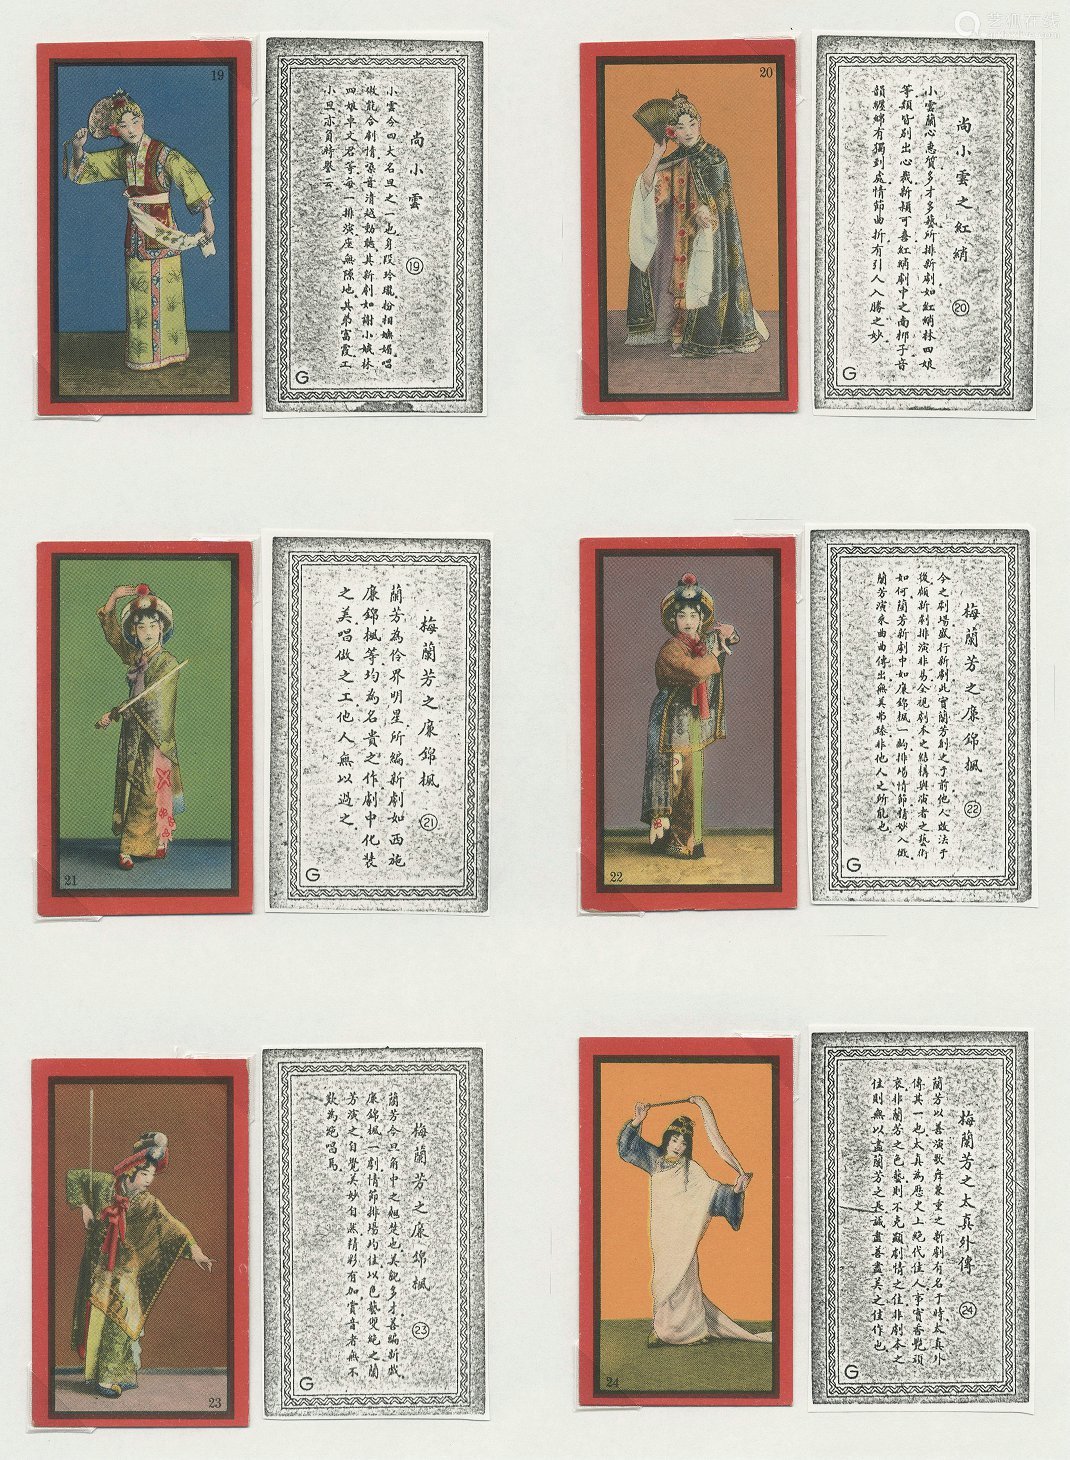 艺狐在线
19
尚小雲
⑲
小雲今四大名旦之一也身段玲瓏扮相嫵媚唱
做能合劇情染音清越動聽其新劇如謝小娥林
四娘卓文君等每一排演座無隙地其弟富霞工
小旦亦負時譽云
G
20
尚小雲之紅綃
⑳
小雲蘭心惠質多才多藝所排新劇如紅綃林四娘
等類皆別出心裁新穎可喜紅綃劇中之南梆子音
韻纏綿有獨到處情節曲折有引人入勝之妙
G
21
梅蘭芳之廉錦楓
㉑
蘭芳為伶界明星所編新劇如西施
廉錦楓等均為名貴之作劇中化裝
之美唱做之工他人無以過之
G
22
梅蘭芳之廉錦楓
㉒
今之劇場盛行新劇此實蘭芳創之于前他人效法于
後顧新劇排演非易全視劇本之結構與演者之藝術
如何蘭芳新劇中如廉錦楓一齣排場情節精妙入微
蘭芳演來曲曲傳出無美弗臻非他人之所能也
G
23
梅蘭芳之廉錦楓
㉓
蘭芳今日旦角中之翹楚也美貌多才善編新戲
廉錦楓一劇情節排場均佳以色藝雙絕之蘭
芳演之自覺美妙自然精彩有加賞音者無不
歎為絕唱焉
G
24
梅蘭芳之太真外傳
㉔
蘭芳以善演歌舞兼重之新劇有名于時太真外
傳其一也太真為歷史上絕代佳人事實香艷頑
哀非蘭芳之色藝則不克顯劇情之佳非劇本之
佳則無以盡蘭芳之長誠盡善盡美之佳作也
G